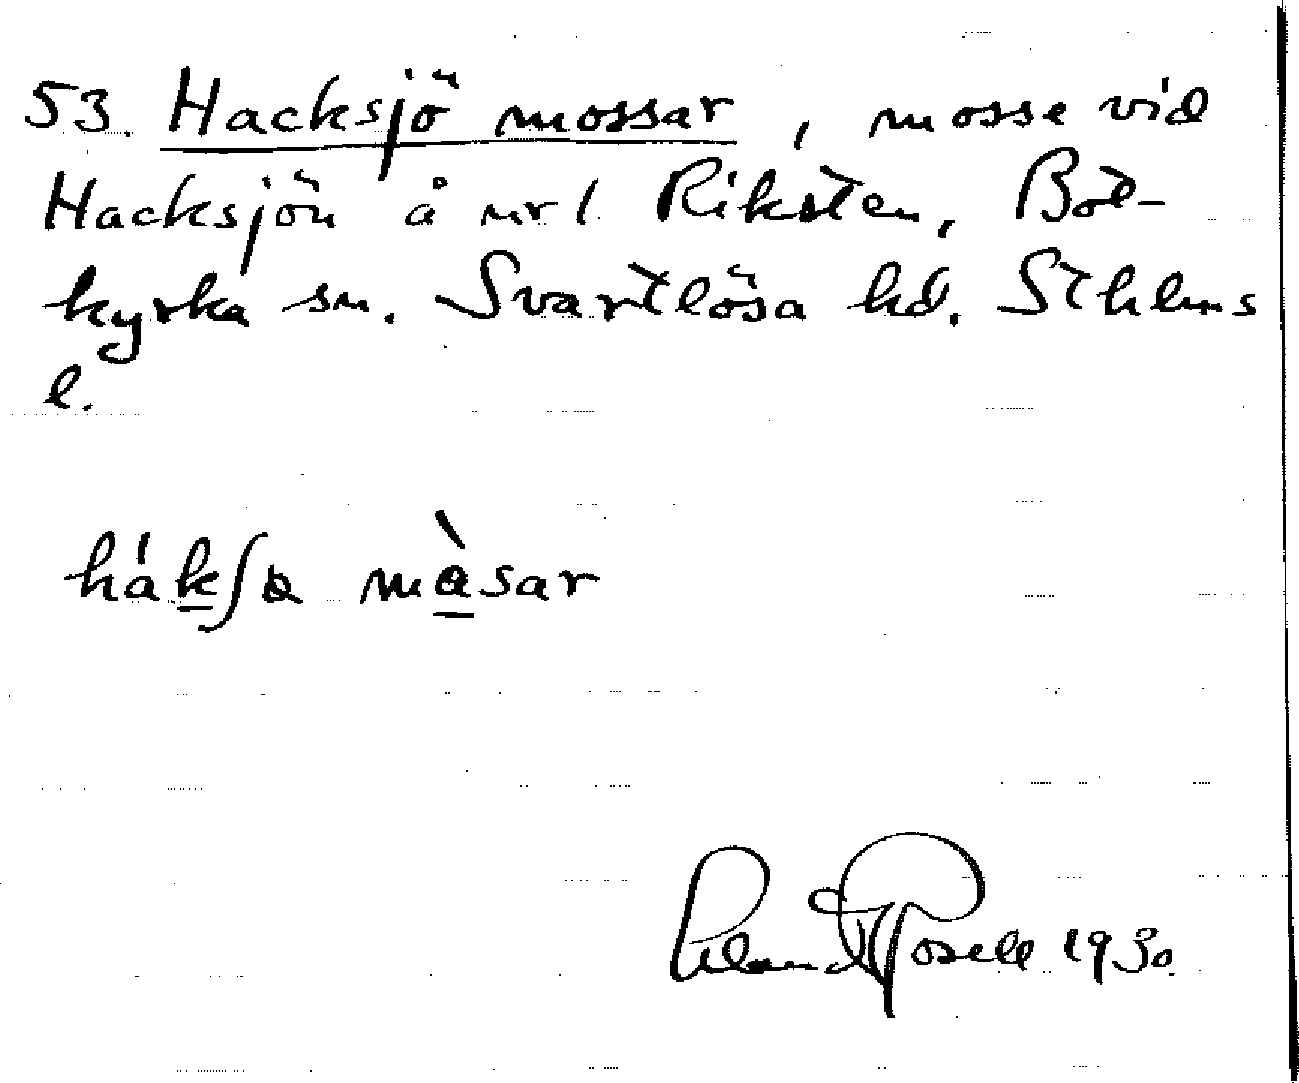 53. Hacksjö mossar, mosse vid
Hacksjön å nr 1. Riksten, Bot-
kyrka sn. Svartlösa hd. Sthlms
l.
hákʃɷ mɑ̀sar
1930.